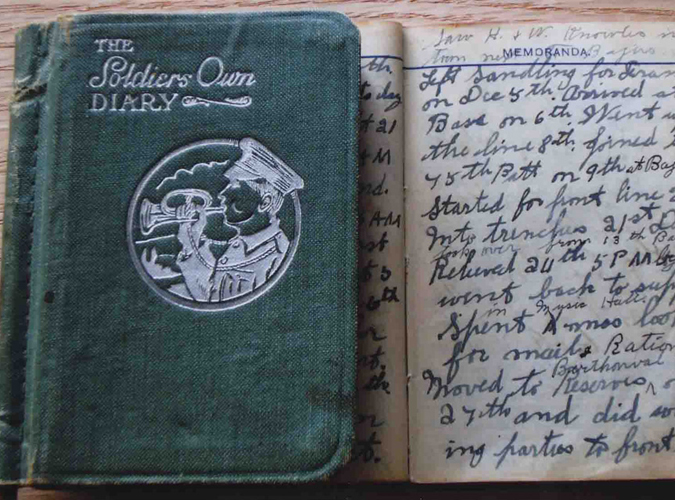 THE
Soldiers' Own
DIARY
MEMORANDA.
Saw H. & W. Knowles in
Left Sandling for Fran
on Dec 5th. Arrived at
Base on 6th. Went u
the line 8th. joined
75th Batt on 9th at
Started for front line
Into trenches 21st
took over from 13th Ba
Relieved 24th 5 PM
went back to sup
in Music Hall
Spent X-mas loo
for mail. Ration
Barthonval
Moved to Reserves
27th and did wo
ing parties to front
th.
day
21
M
nd.
AM
th
th